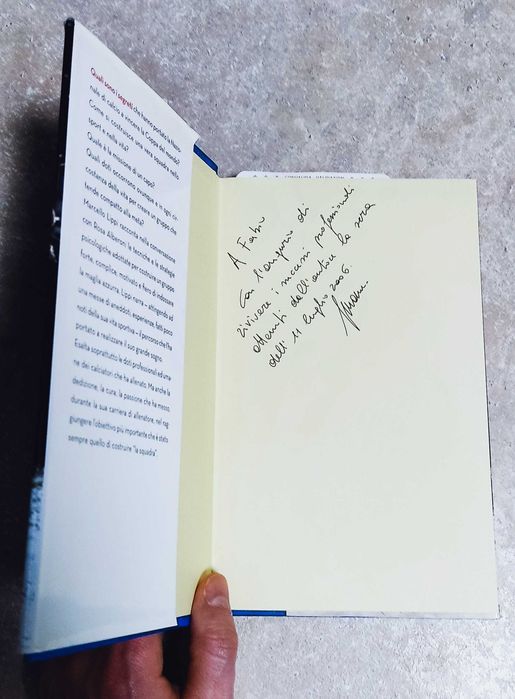 Quali sono i segreti che hanno portato la Nazio-
nale di calcio a vincere la Coppa del mondo?
Come si costruisce una vera squadra nello
sport e nella vita?
Quale è la missione di un capo?
Quali doti occorrono ovunque e in ogni cir-
costanza della vita per creare un gruppo che
tende compatto alla meta?
Marcello Lippi racconta nella conversazione
con Rosa Alberoni le tecniche e le strategie
psicologiche adottate per costruire un gruppo
forte, complice, motivato e fiero di indossare
la maglia azzurra. Lippi narra – attingendo ad
una messe di aneddoti, esperienze, fatti poco
noti della sua vita sportiva – il percorso che l'ha
portato a realizzare il suo grande sogno.
Esalta soprattutto le doti professionali ed uma-
ne dei calciatori che ha allenato. Ma anche la
dedizione, la cura, la passione che ha messo,
durante la sua carriera di allenatore, nel rag-
giungere l'obiettivo più importante che è stato
sempre quello di costruire "la squadra".
A Fabio
Con l'augurio di
rivivere i successi professionali
ottenuti dall'autore la sera
dell' 11 luglio 2006